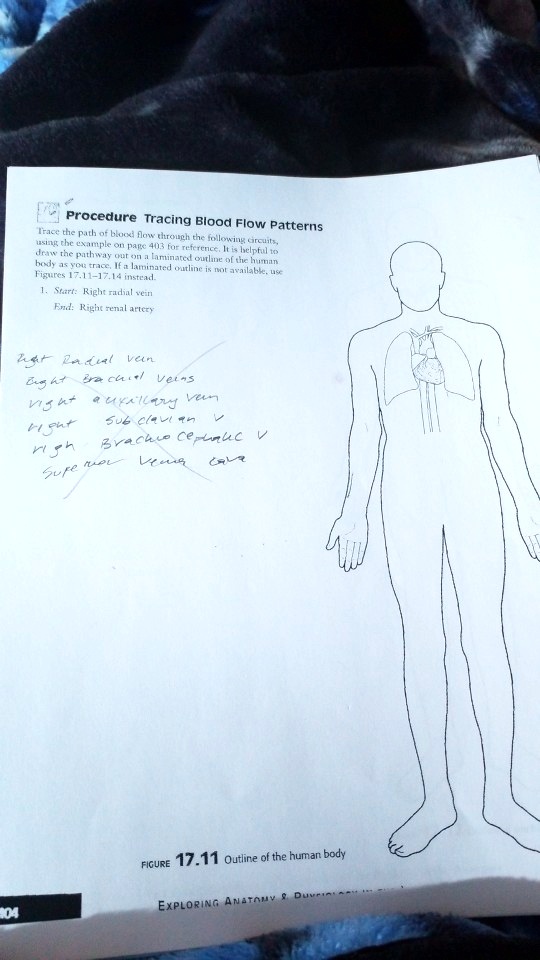 Procedure Tracing Blood Flow Patterns
Trace the path of blood flow through the following circuits,
using the example on page 403 for reference. It is helpful to
draw the pathway out on a laminated outline of the human
body as you trace. If a laminated outline is not available, use
Figures 17.11–17.14 instead.
1. Start: Right radial vein
End: Right renal artery
Right Radial vein
Right Brachial veins
right auxillary vein
right Subclavian V
righ Brachiocephalic V
Superior vena cava
FIGURE 17.11 Outline of the human body
404
EXPLORING ANATOMY &